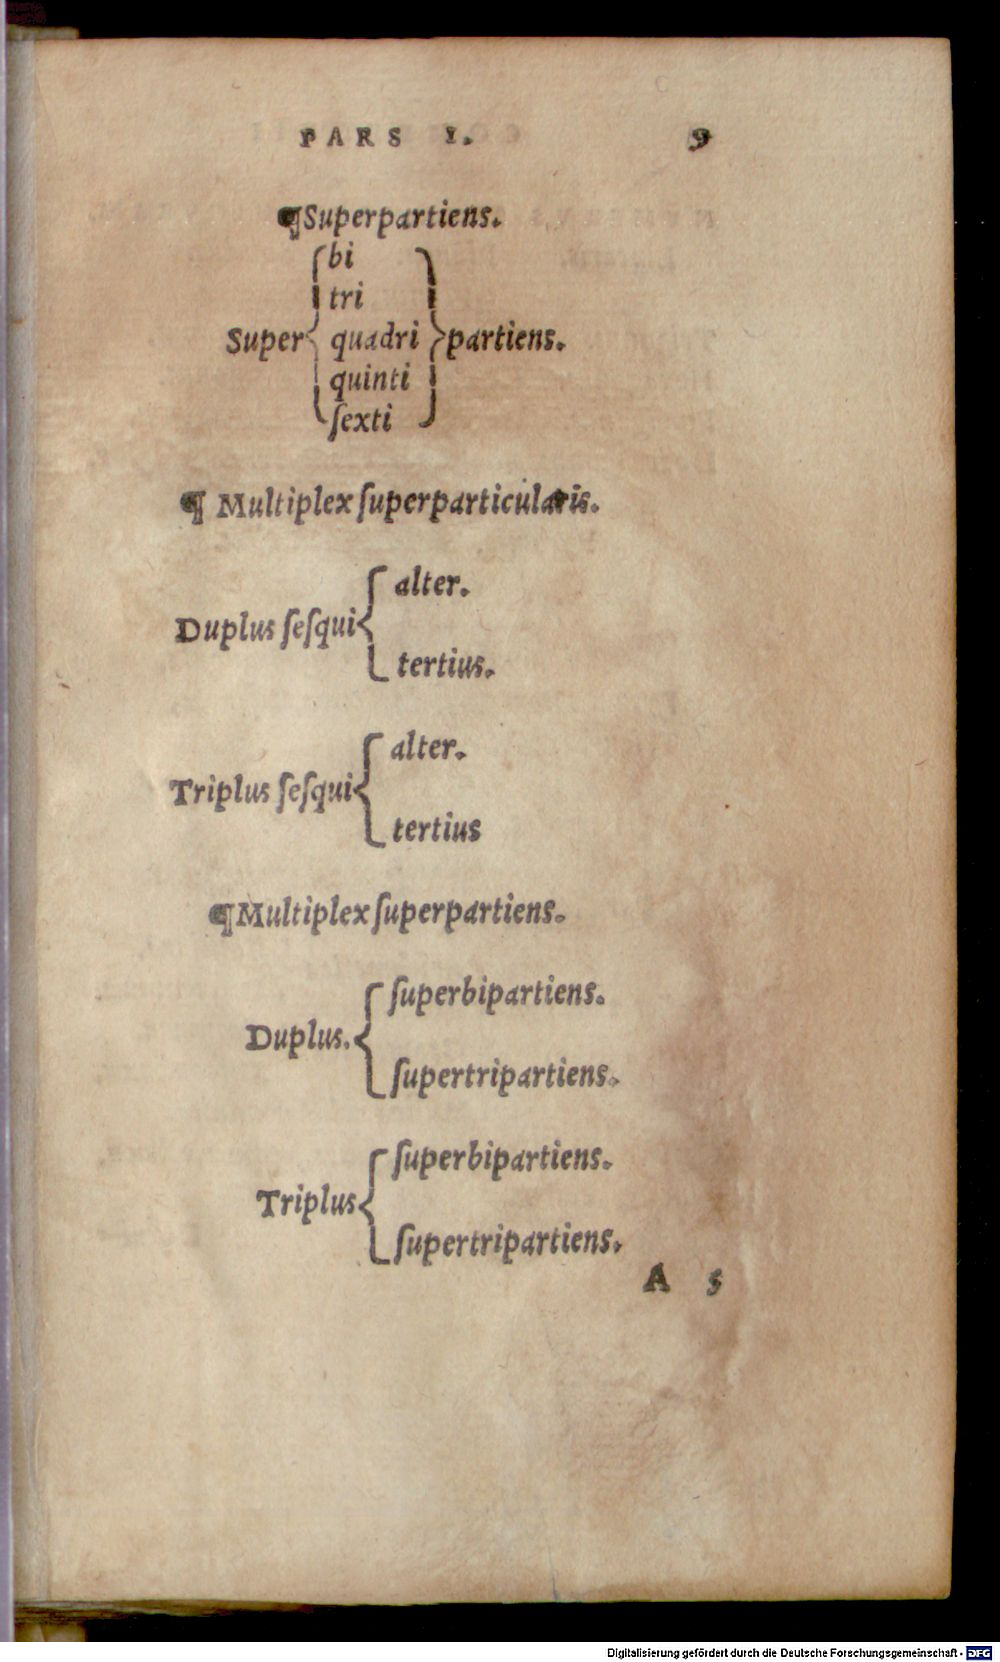 PARS I. 9
¶Superpartiens.
bi
tri
Super quadri partiens.
quinti
ſexti
¶ Multiplex ſuperparticularis.
alter.
Duplus ſeſqui
tertius.
alter.
Triplus ſeſqui
tertius
¶Multiplex ſuperpartiens.
ſuperbipartiens.
Duplus.
ſupertripartiens.
ſuperbipartiens.
Triplus
ſupertripartiens.
A 5
Digitalisierung gefördert durch die Deutsche Forschungsgemeinschaft - DFG